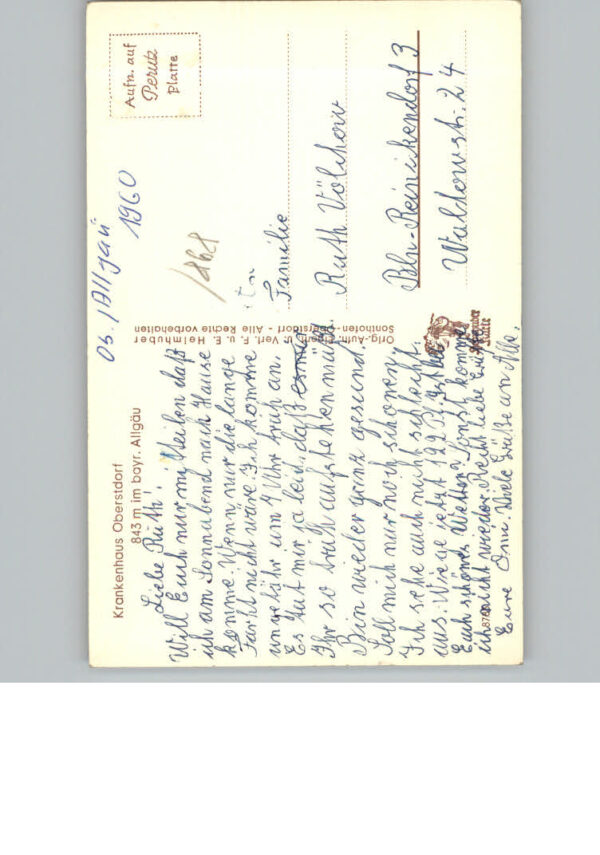 Krankenhaus Oberstdorf
843 m im bayr. Allgäu
Liebe Ruth!
Will Euch nur mitteilen daß
ich am Sonnabend nach Hause
komme. Wenn nur die lange
Fahrt nicht wäre. Ich komme
ungefähr um 4 Uhr früh an.
Es tut mir ja leid, daß
Ihr so früh aufstehen müßt.
Bin wieder ganz gesund.
Soll mich nur noch schonen.
Ich sehe auch nicht schlecht
aus. Wiege jetzt 122 Pf.
Euch schönes Wetter? Sonst komme
ich nicht wieder. Recht liebe Grüße
Eure Omi. Viele Grüße an Alle.
878
Orig.-Aufn. Eigent. u. Verl. F. u. E. Helmhuber
Sonthofen-Oberstdorf - Alle Rechte vorbehalten
Os. /Allgäu
1960
Aufn. auf
Perutz
Platte
Familie
Ruth Völchow
Bln-Reinickendorf 3
Waldowstr. 24